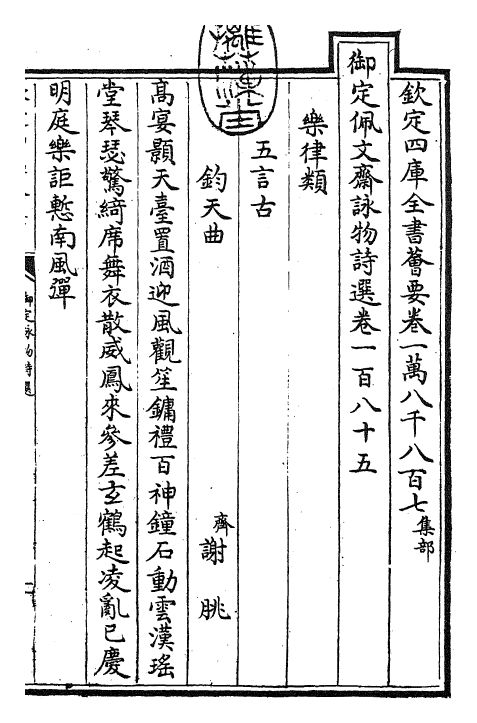 欽定四庫全書薈要卷一萬八千八百七集部
御定佩文齋詠物詩選卷一百八十五
樂律類
五言古
鈞天曲 齊謝朓
高宴顥天臺置酒迎風觀笙鏞禮百神鐘石動雲漢瑤
堂琴瑟驚綺席舞衣散威鳳來參差玄鶴起凌亂已慶
明庭樂詎慙南風彈
御定詠物詩選